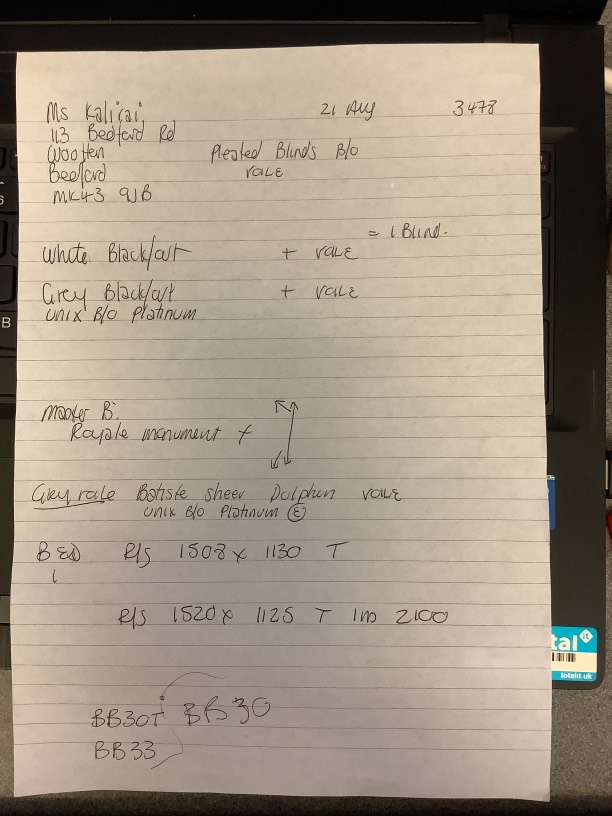 Ms Kalirai 21 Aug 3478
113 Bedford Rd
Wootten Pleated Blinds B/o
Bedford VALE
MK43 9JB
= 1 Blind.
White Black/out + VALE
Grey Black/out + VALE
Unix B/o Platinum
Master B:
Royale monument +
Grey rale Batiste sheer Dolphin VALE
Unix B/o Platinum (E)
BED R/S 1508 x 1130 T
1
R/S 1520 x 1125 T 1m 2100
BB30T BB30
BB33
tal it
totalit.uk
B
6